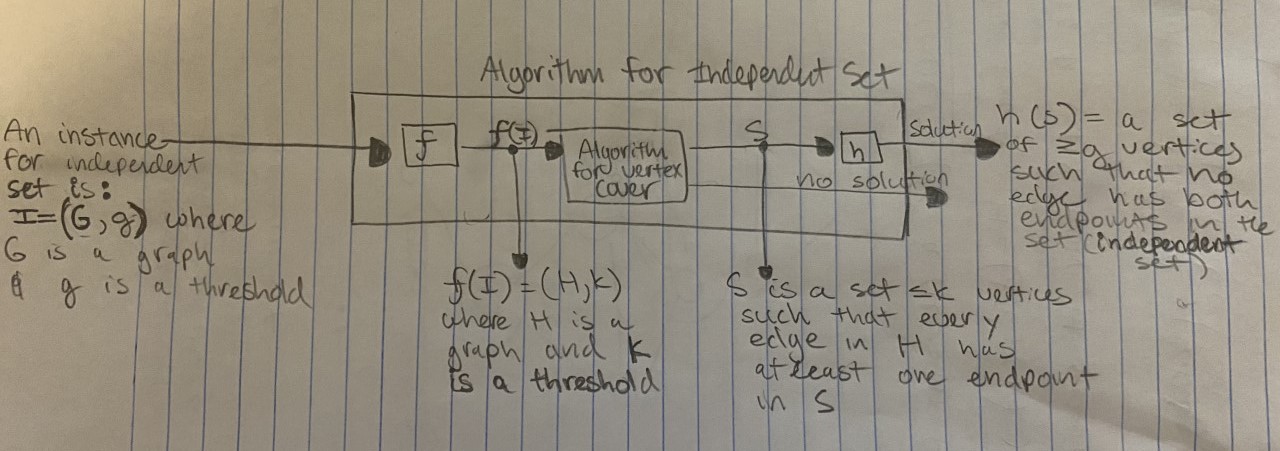 Algorithm for Independent Set
An instance
for independent
set is:
I=(G,g) where
G is a graph
& g is a threshold
f
f(I)
Algorithm
for vertex
cover
S
h
solution
no solution
h(s) = a set
of ≥g vertices
such that no
edge has both
endpoints in the
set (independent
set)
f(I) = (H,k)
where H is a
graph and k
is a threshold
S is a set ≤k vertices
such that every
edge in H has
atleast one endpoint
in S